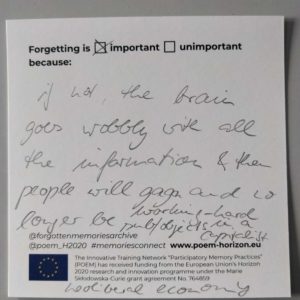 Forgetting is ☒ important ☐ unimportant
because:
if not, the brain
goes wobbly with all
the information & then
people will gaga and no
working-hard
longer be subjects in a
capitalist
@forgottenmemoriesarchive
@poem_H2020 #memoriesconnect www.poem-horizon.eu
The Innovative Training Network "Participatory Memory Practices"
(POEM) has received funding from the European Union's Horizon
2020 research and innovation programme under the Marie
Skłodowska-Curie grant agreement No. 764859
economy